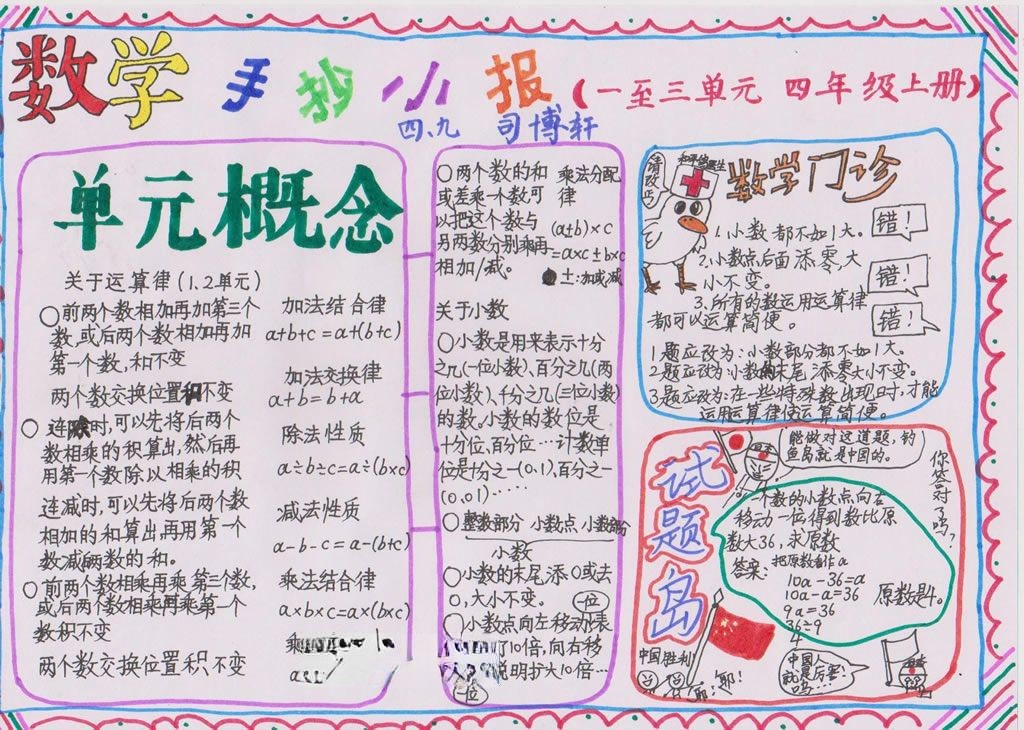 数学手抄小报(一至三单元 四年级上册)
四、九 司博轩
单元概念
关于运算律(1、2单元)
○前两个数相加再加第三个
数,或后两个数相加再加
第一个数,和不变
加法结合律
a+b+c=a+(b+c)
两个数交换位置和不变
加法交换律
a+b=b+a
○连除时,可以先将后两个
数相乘的积算出,然后再
用第一个数除以相乘的积
除法性质
a÷b÷c=a÷(b×c)
连减时,可以先将后两个数
相加的和算出,再用第一个
数减两数的和。
减法性质
a-b-c=a-(b+c)
○前两个数相乘再乘第三个数,
或后两个数相乘再乘第一个
数积不变
乘法结合律
a×b×c=a×(b×c)
两个数交换位置积不变
乘
○两个数的和
或差乘一个数可
以把这个数与
另两数分别乘再
相加/减。
乘法分配
律
(a±b)×c
=a×c±b×c
±:加或减
关于小数
○小数是用来表示十分
之几(一位小数)、百分之几(两
位小数)、千分之几(三位小数)
的数,小数的数位是
十分位,百分位…计数单
位是十分之一(0.1),百分之一
(0.01)……
○整数部分 小数点 小数部分
小数
○小数的末尾添0或去
0,大小不变。
一位
○小数点向左移动表
了10倍,向右移
说明扩大10倍…
一位
请改巧
数学门诊
1.小数都不如1大。
错!
2.小数点后面添零,大
小不变。
错!
3.所有的数运用运算律
都可以运算简便。
错!
1题应改为:小数部分都不如1大。
2题应改为:小数的末尾添零大小不变。
3题应改为:在一些特殊数出现时,才能
运用运算律使运算简便。
试题岛
能做对这道题,钓
鱼岛就是中国的。
你答对了吗?
一个数的小数点向右
移动一位得到数比原
数大36,求原数
答案:把原数看作a
10a-36=a
10a-a=36
9a=36
36÷9
4
原数是4。
中国胜利
耶!
耶!
中国人
就是厉害!
呜…